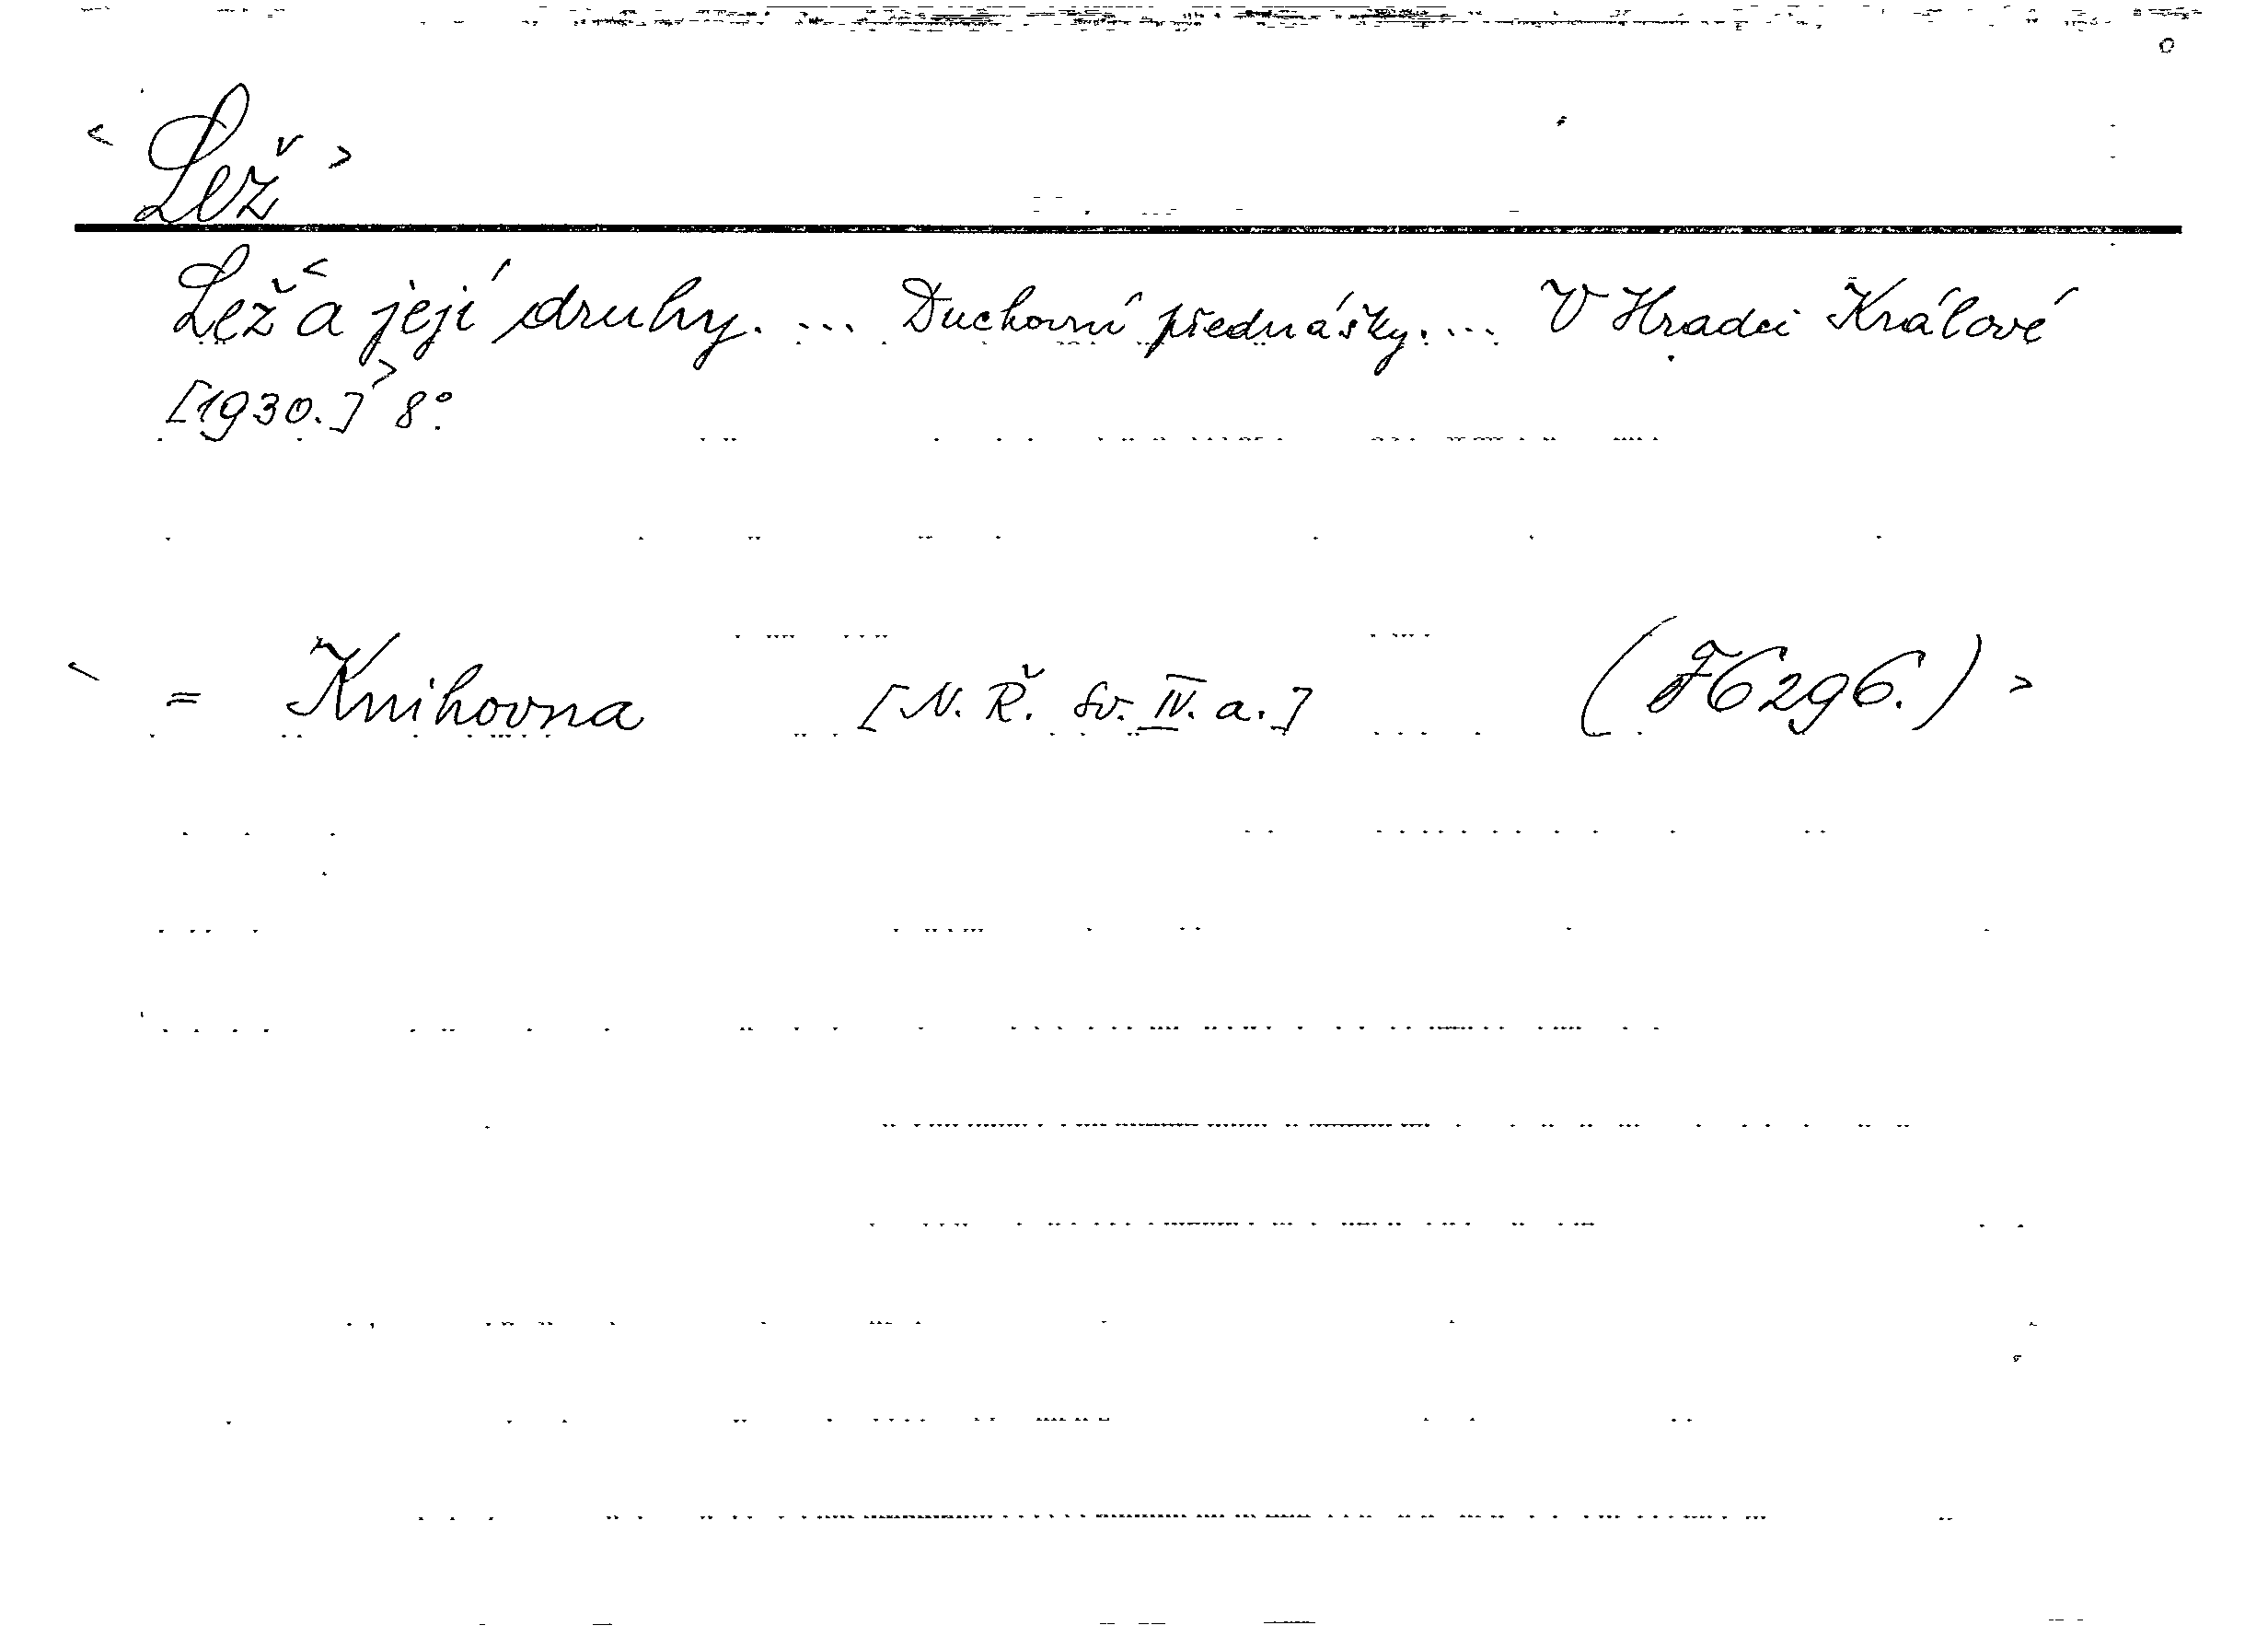 < Lež >
Lež < a její druhy. ... Duchovní přednášky. ... V Hradci Králové
[1930.] > 8°.
< = Knihovna [N. Ř. Sv. IV. a.] (F6296.) >